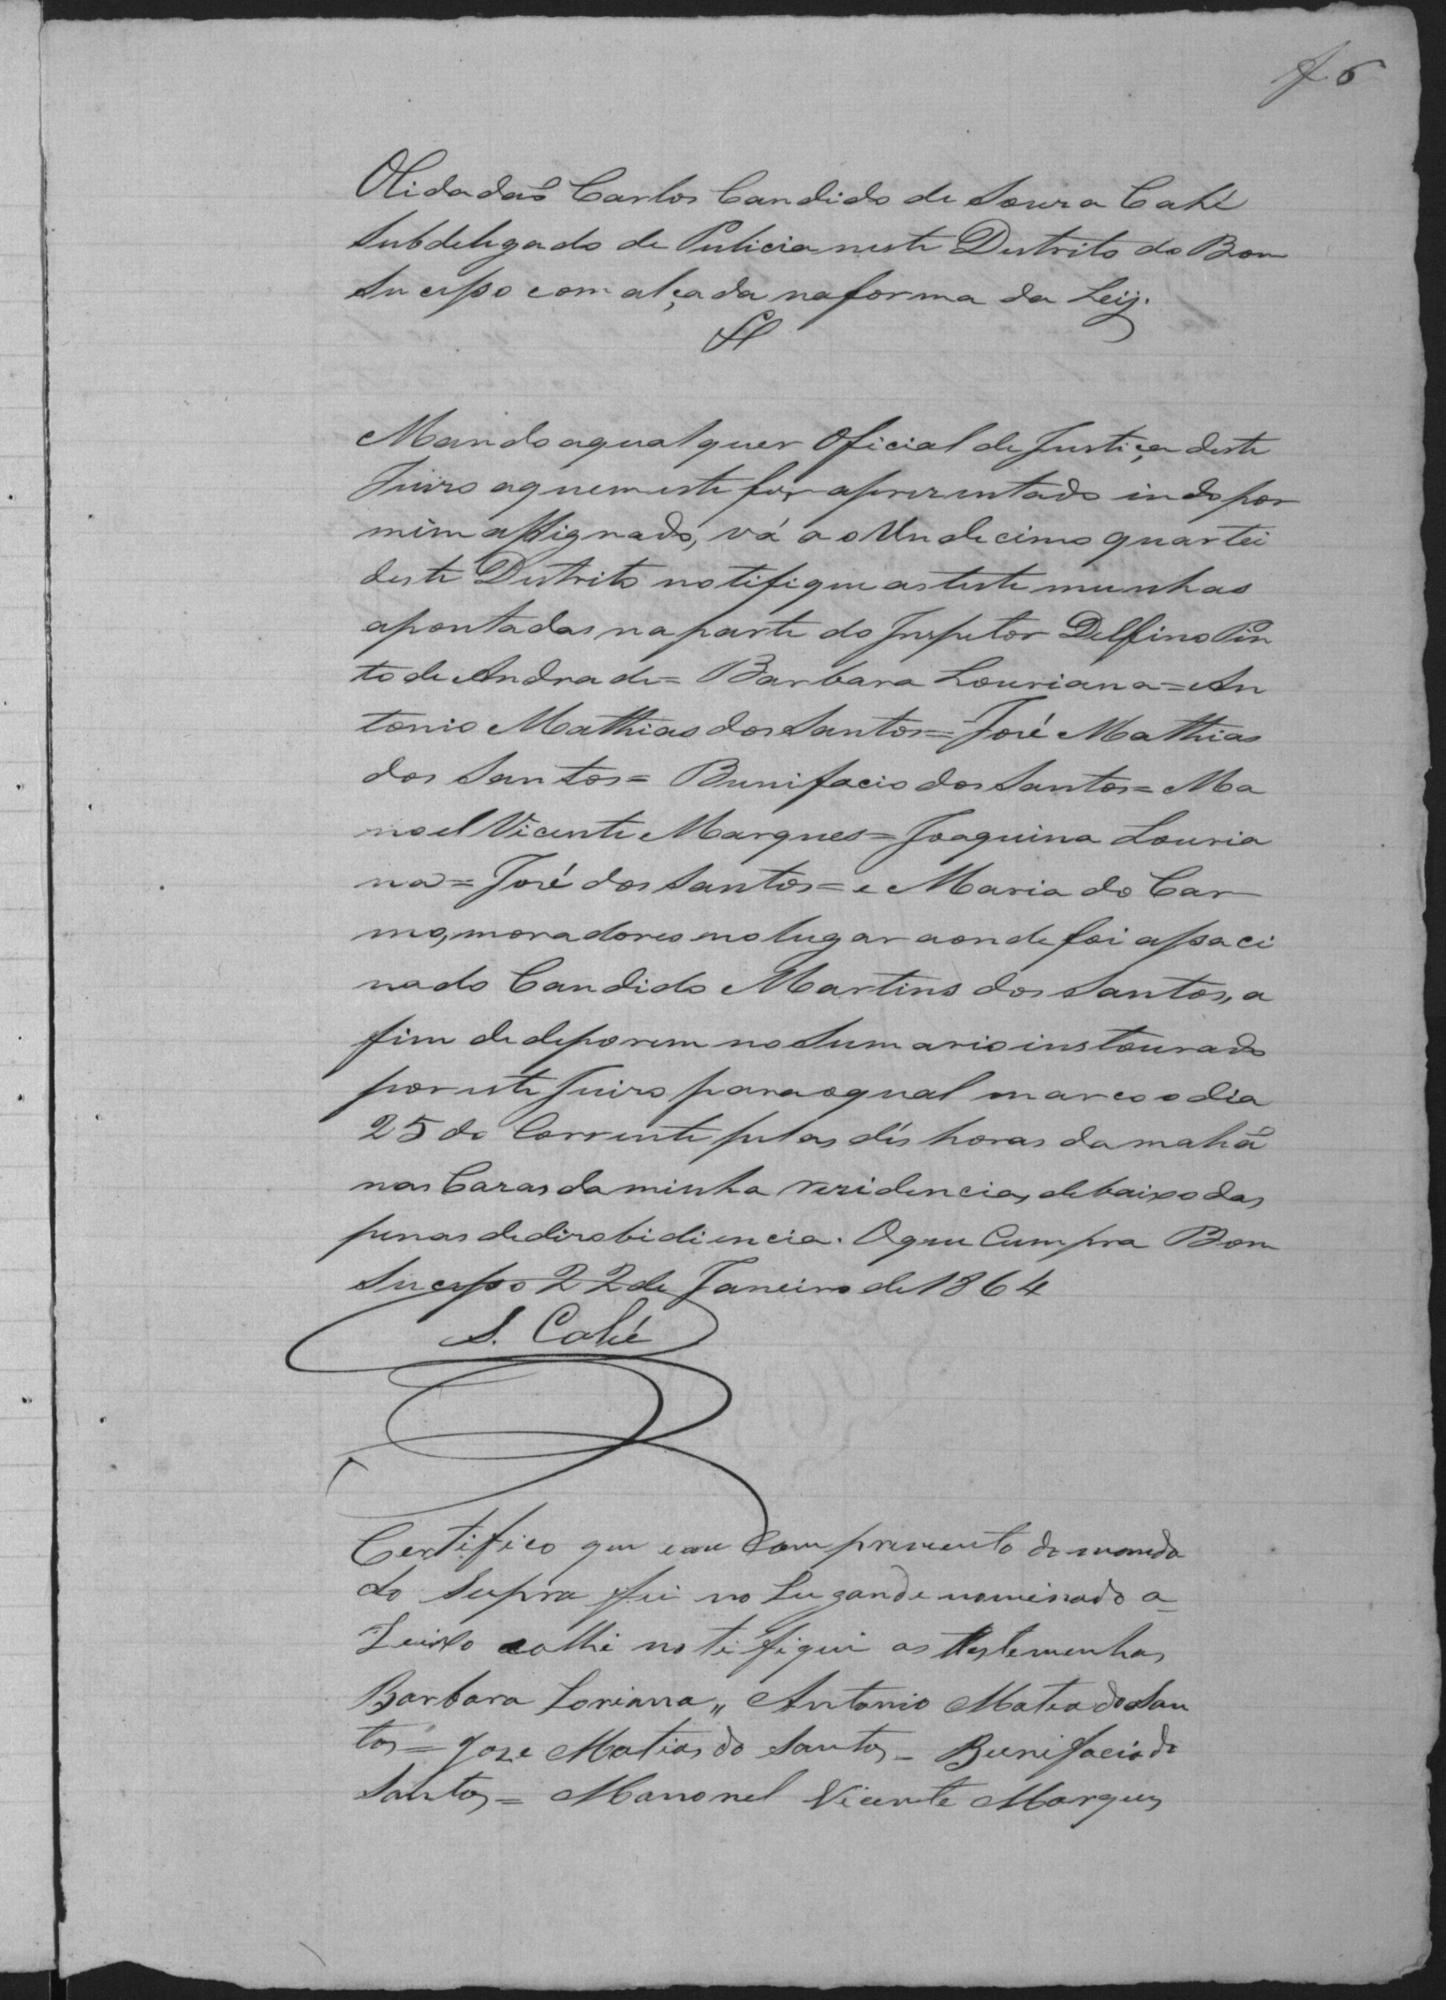 f. 6
O Cidadaõ Carlos Candido de Souza Cahé
Subdelegado de Pulicia neste Destrito do Bom
Sucesso com alçada na forma da Leij.
Mando aqualquer Oficial de Justiça deste
Juizo aquem este for aprezentado indo por
mim assignado, vá ao Undecimo quartei
deste Destrito notifique as testemunhas
apontadas na parte do Inspetor Delfino Pin
to de Andrade= Barbara Louriana= An
tonio Mathias dos Santos= José Mathias
dos Santos= Bunifacio dos Santos= Ma
noel Vicente Marques= Joaquina Louria
na= José dos Santos= e Maria do Car
mo, moradores no lugar aonde foi assaci
nado Candido Martins dos Santos, a
fim de deporem no Sumario instourado
por este Juizo para oqual marco o dia
25 do Corrente pelas dés horas da mahã
nas Cazas da minha rezidencia, debaixo das
penas de dezobidiencia. Oque Cumpra Bom
Sucesso 22 de Janeiro de 1864
S. Cahé
Certifico que em Comprimento do manda
do Supra fui no Lugar denominado a
e alhi notifiquei as testemenhas
Barbara Loriana,, Antonio Matia do San
tos= Joze Matias do Santos= Bunifacio do
Santos= Manonel Vicente Marques